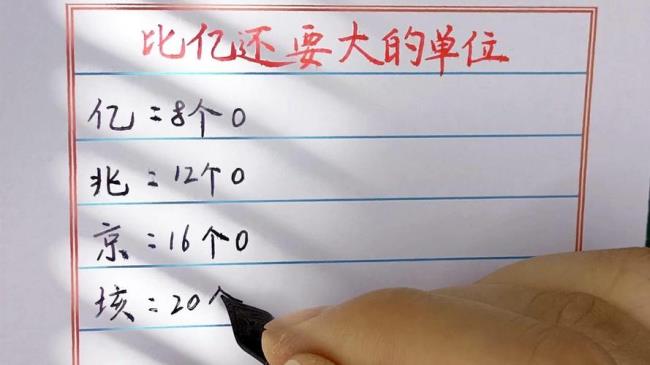 比亿还要大的单位
亿=8个0
兆=12个0
京=16个0
垓=20个